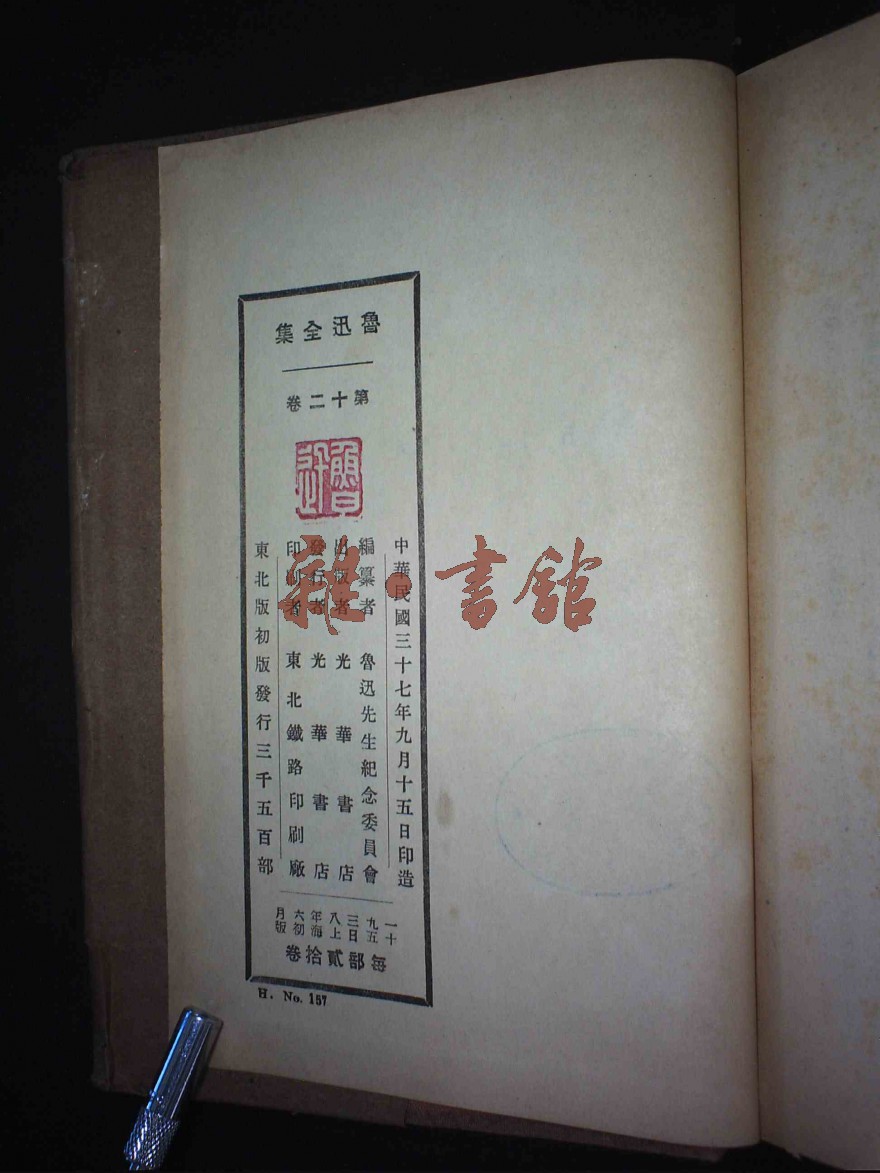 魯迅全集
第十二卷
魯迅
中華民國三十七年九月十五日印造
編纂者 魯迅先生紀念委員會
出版者 光華書店
發行者 光華書店
印刷者 東北鐵路印刷廠
東北版初版發行三千五百部
一九三八年六月
十五日上海初版
每部貳拾卷
H. No. 157
雜·書館